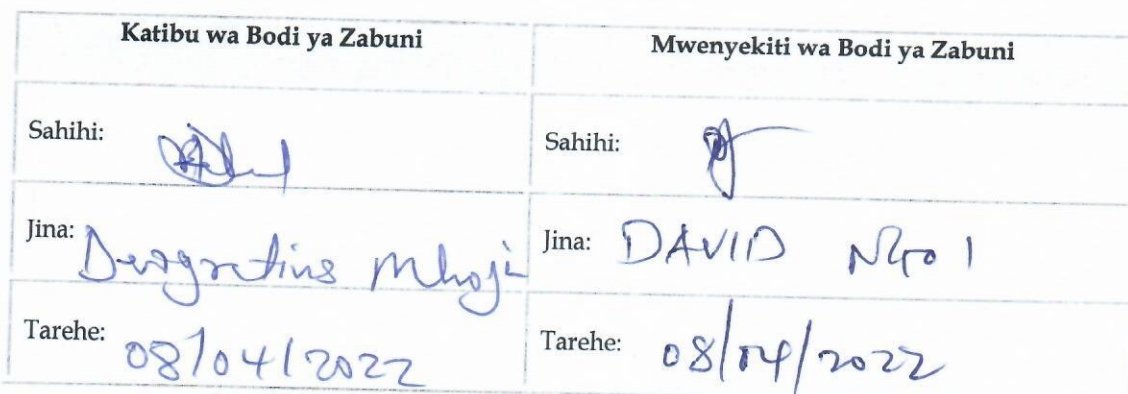 Katibu wa Bodi ya Zabuni
Mwenyekiti wa Bodi ya Zabuni
Sahihi:
Sahihi:
Jina: Deogratius Mhoji
Jina: DAVID
Tarehe: 08/04/2022
Tarehe: 08/04/2022